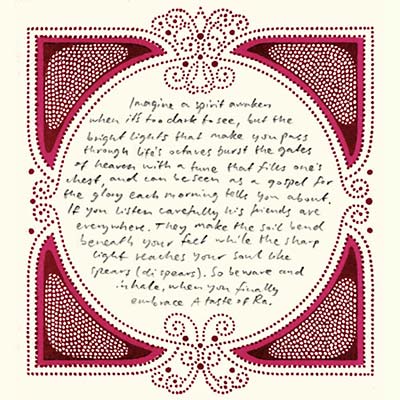 Imagine a spirit awaken
when it's too dark to see, but the
bright lights that make you pass
through life's octaves burst the gates
of heaven with a tune that fills one's
chest, and can be seen as a gospel for
the glory each morning tells you about.
If you listen carefully his friends are
everywhere. They make the soil bend
beneath your felt while the sharp
light reaches your soul like
spears (di spears). So beware and
inhale, when you finally
embrace A taste of Ra.